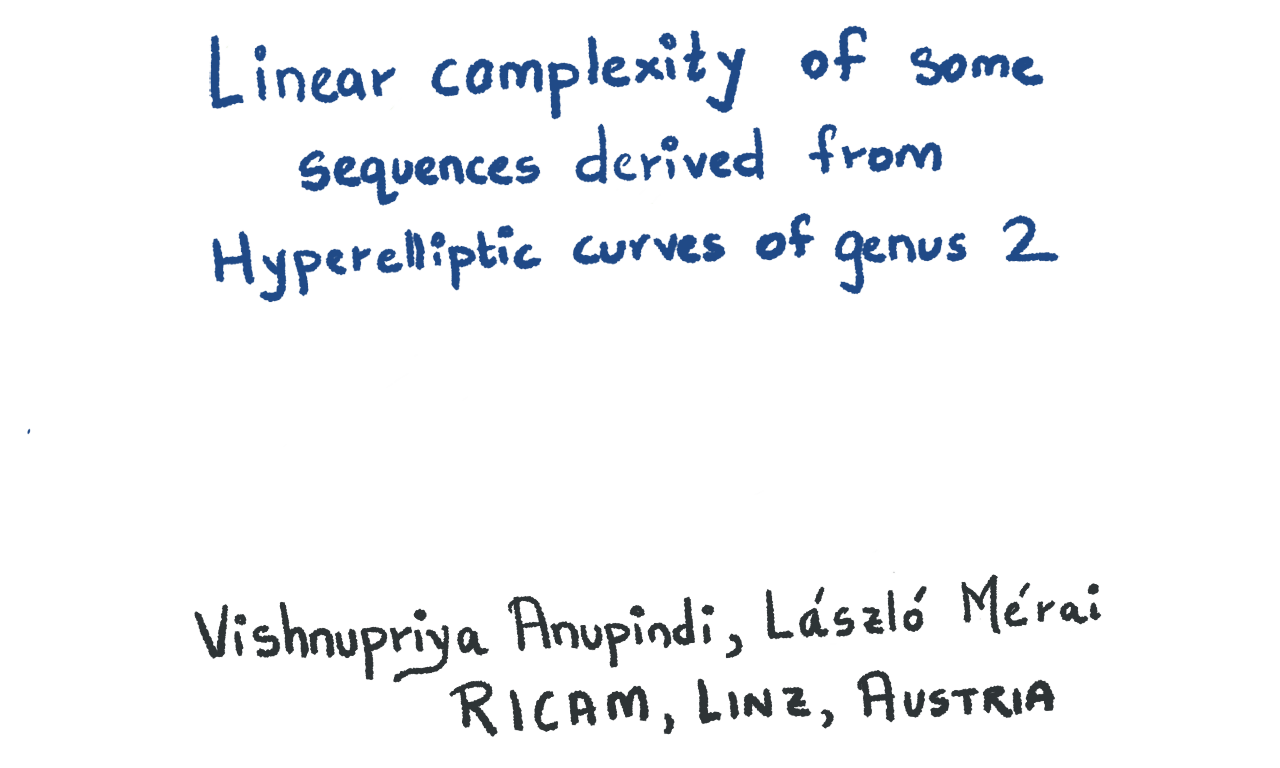 Linear complexity of some
sequences derived from
Hyperelliptic curves of genus 2
Vishnupriya Anupindi, László Mérai
RICAM, LINZ, AUSTRIA